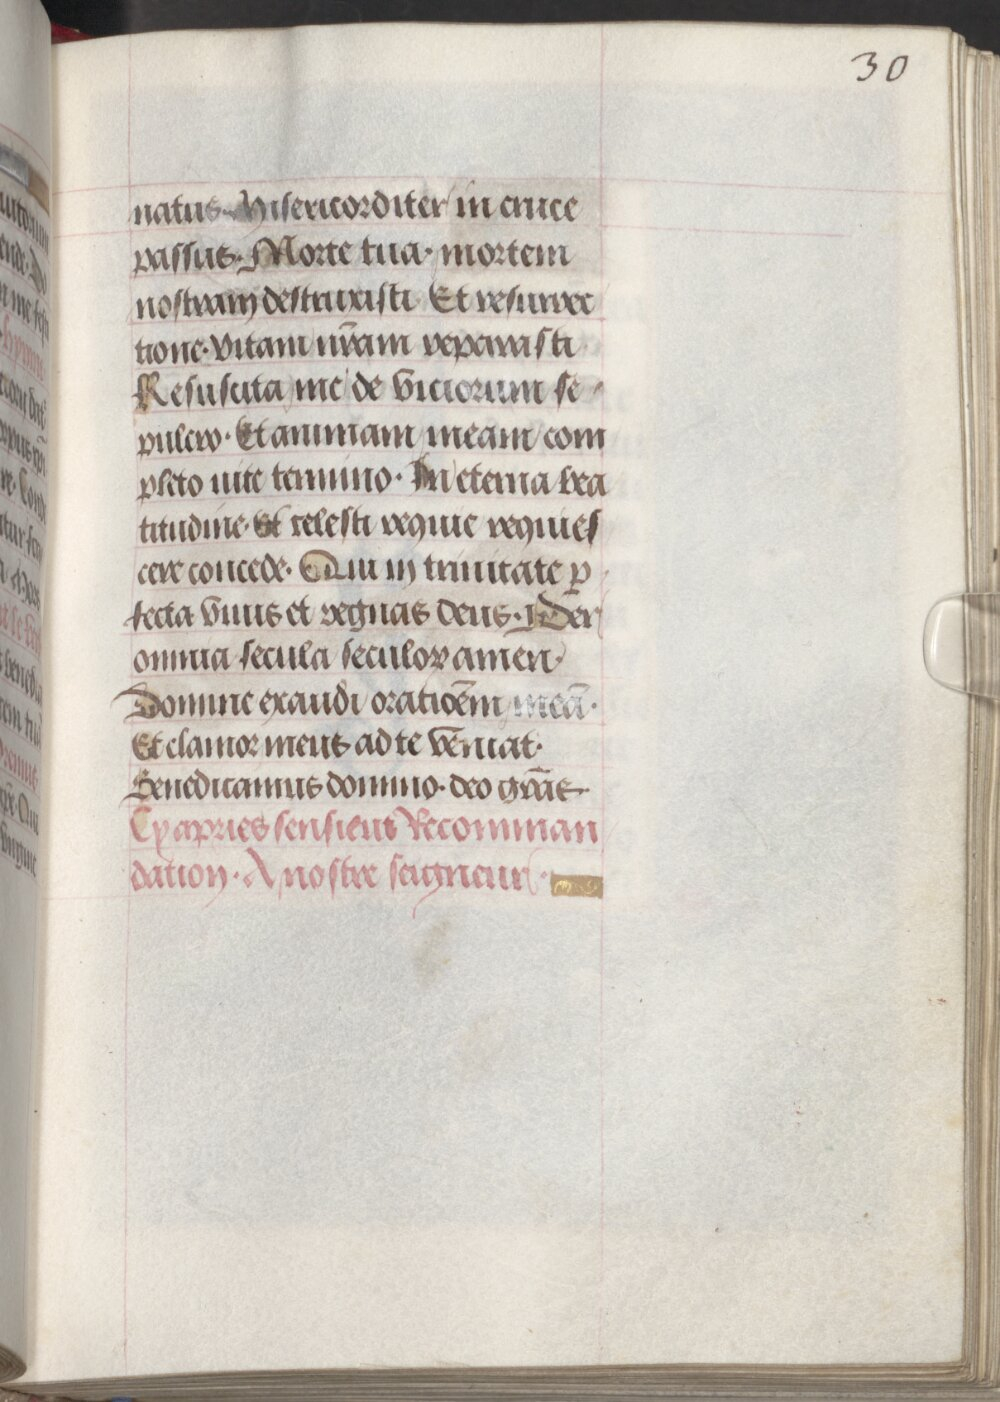 30
natus. Misericorditer in cruce
passus. Morte tua. mortem
nostram destruxisti Et resurrec
tione. vitam nr̄am reparasti
Resuscita me de viciorum se
pulcro. Et animam meam com
pleto uite termino. In eterna bea
titudine. Et celesti requie requies
cere concede. Qui in trinitate p
fecta viuis et regnas deus. Per
omnia secula seculor amen.
Domine exaudi oratiōem meā.
Et clamor meus ad te vēniat.
Benedicamus domino. deo gr̄as
Cy apries sensieut Recomman
dation. A nostre seigneur.